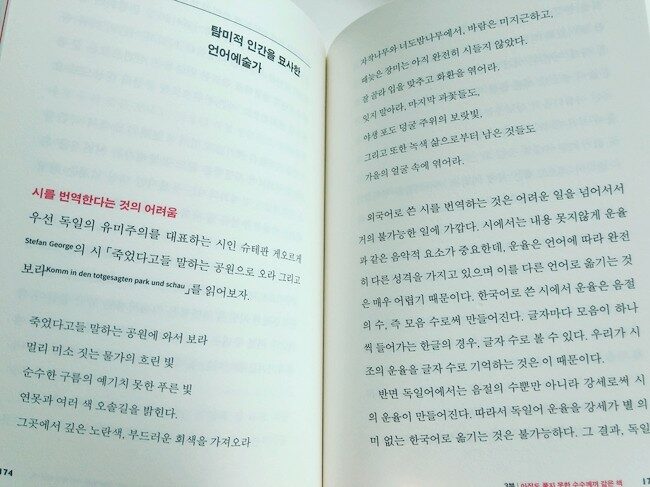 탐미적 인간을 묘사한
언어예술가
시를 번역한다는 것의 어려움
우선 독일의 유미주의를 대표하는 시인 슈테판 게오르게
Stefan George의 시 「죽었다고들 말하는 공원으로 오라 그리고
보라Komm in den totgesagten park und schau」를 읽어보자.
죽었다고들 말하는 공원에 와서 보라
멀리 미소 짓는 물가의 흐린 빛
순수한 구름의 예기치 못한 푸른 빛
연못과 여러 색 오솔길을 밝힌다.
그곳에서 깊은 노란색, 부드러운 회색을 가져오라
174
자작나무와 너도밤나무에서, 바람은 미지근하고,
때늦은 장미는 아직 완전히 시들지 않았다.
잘 골라 입을 맞추고 화환을 엮어라.
잊지 말아라, 마지막 과꽃들도,
야생 포도 덩굴 주위의 보랏빛,
그리고 또한 녹색 삶으로부터 남은 것들도
가을의 얼굴 속에 엮어라.
외국어로 쓴 시를 번역하는 것은 어려운 일을 넘어서서
거의 불가능한 일에 가깝다. 시에서는 내용 못지않게 운율
과 같은 음악적 요소가 중요한데, 운율은 언어에 따라 완전
히 다른 성격을 가지고 있으며 이를 다른 언어로 옮기는 것
은 매우 어렵기 때문이다. 한국어로 쓴 시에서 운율은 음절
의 수, 즉 모음 수로써 만들어진다. 글자마다 모음이 하나
씩 들어가는 한글의 경우, 글자 수로 볼 수 있다. 우리가 시
조의 운율을 글자 수로 기억하는 것은 이 때문이다.
반면 독일어에서는 음절의 수뿐만 아니라 강세로써 시
의 운율이 만들어진다. 따라서 독일어 운율을 강세가 별 의
미 없는 한국어로 옮기는 것은 불가능하다. 그 결과, 독일
3부 아직도 풀지 못한 수수께끼 같은 책